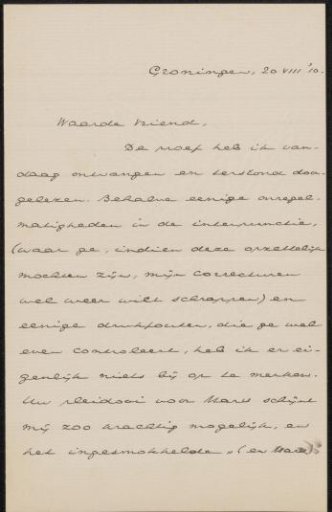 Groningen, 20 VIII '10.
Waarde Vriend,
De proef heb ik van-
daag ontvangen en terstond door-
gelezen. Behalve eenige onregel-
matigheden in de interpunctie,
(waar ge, indien deze opzettelijk
mochten zijn, mijn correcturen
wel weer wilt schrappen) en
eenige drukfouten, die ge wel
even controleert, heb ik er ei-
genlijk niets bij op te merken.
Uw pleidooi voor Mars schijnt
mij zoo krachtig mogelijk, en
het ingesmokkelde „(en Mars)"